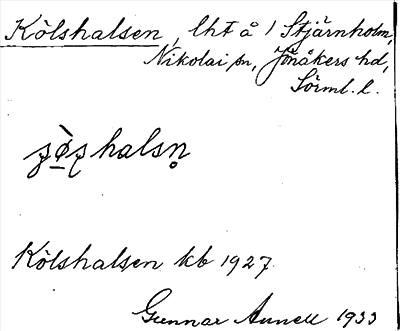 Kölshalsen, lht å / Stjärnholm,
Nikolai sn, Jönåkers hd,
Sörml. l.
Kölshalsen kb 1927
Gunnar Annell 1933